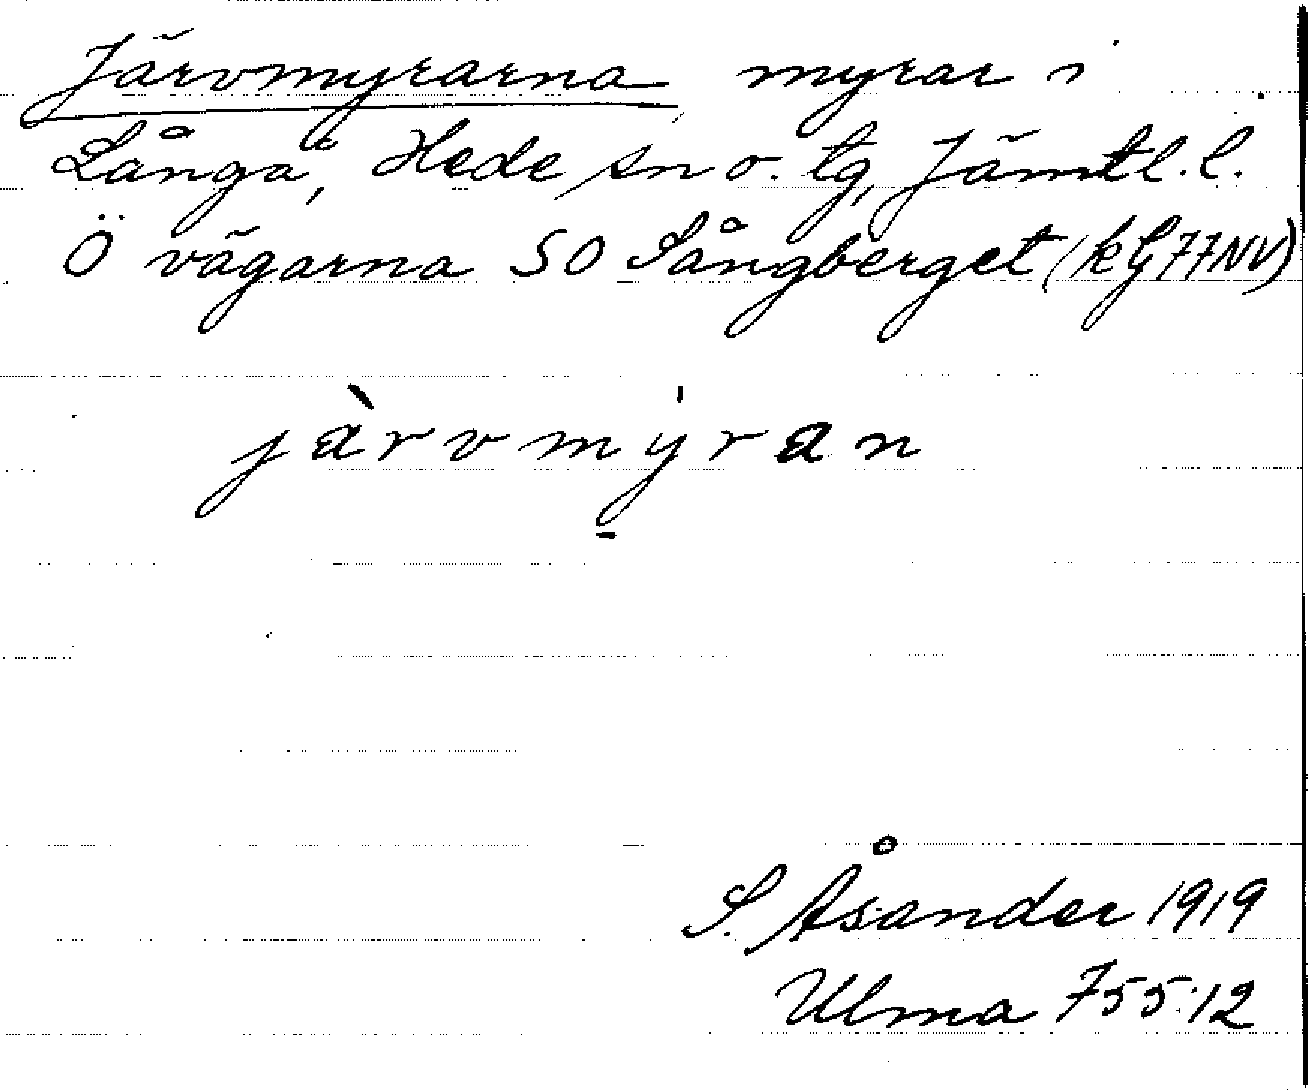 Järvmyrarna myrar i
Långå, Hede sn o. tg, Jämtl. l.
Ö vägarna SO Sångberget (kG 77NV)
jàrvmýran
S. Åsander 1919
Ulma 755:12